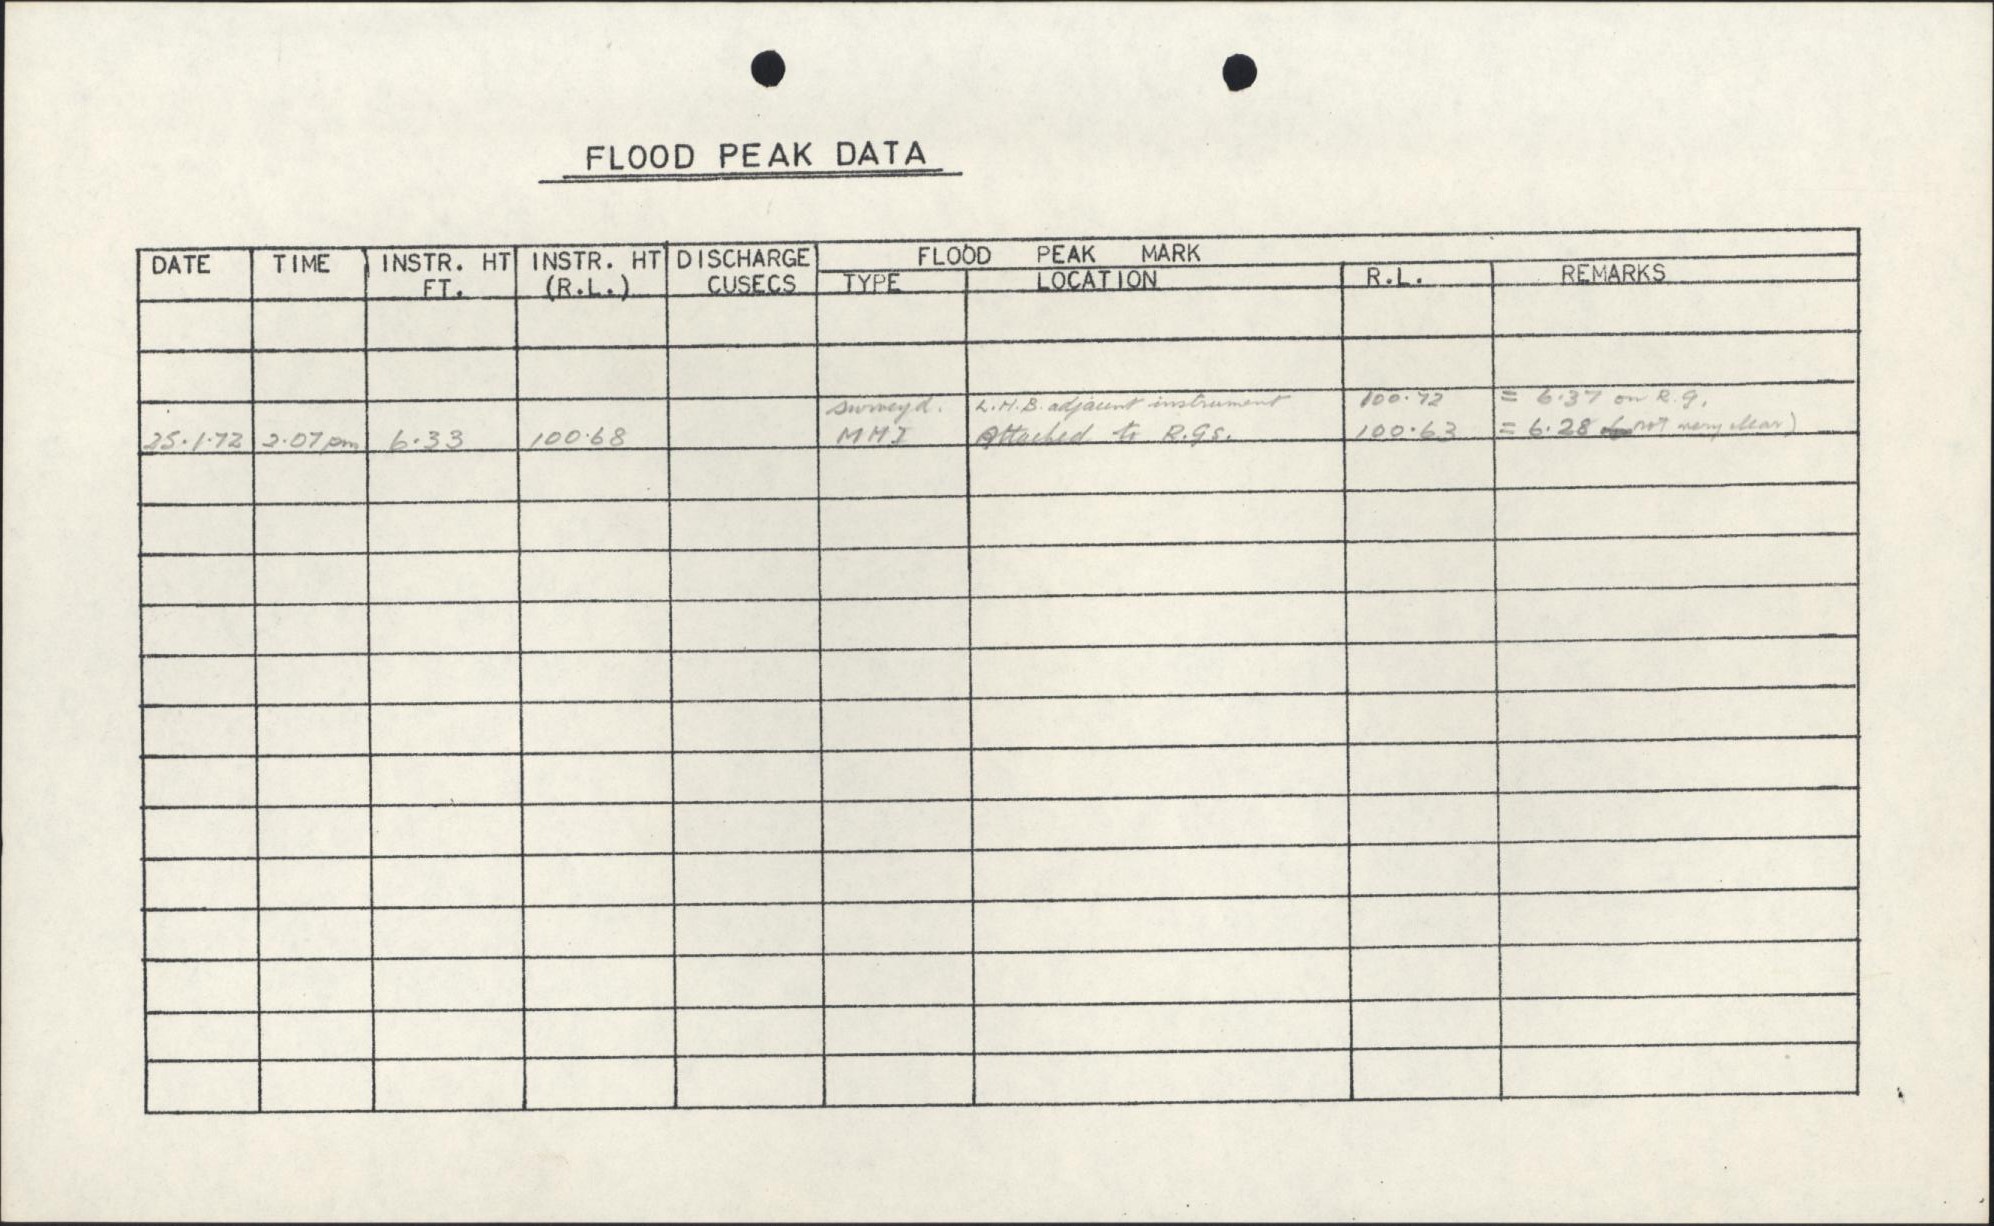 FLOOD PEAK DATA
DATE TIME INSTR. HT FT. INSTR. HT (R.L.) DISCHARGE CUSECS FLOOD PEAK MARK
TYPE LOCATION R.L. REMARKS
surveyd. L.H.B. adjacent instrument 100.72 = 6.37 on R.G.
25.1.72 2.07 pm 6.33 100.68 MHI Attached to R.Gs. 100.63 = 6.28 not very clear)